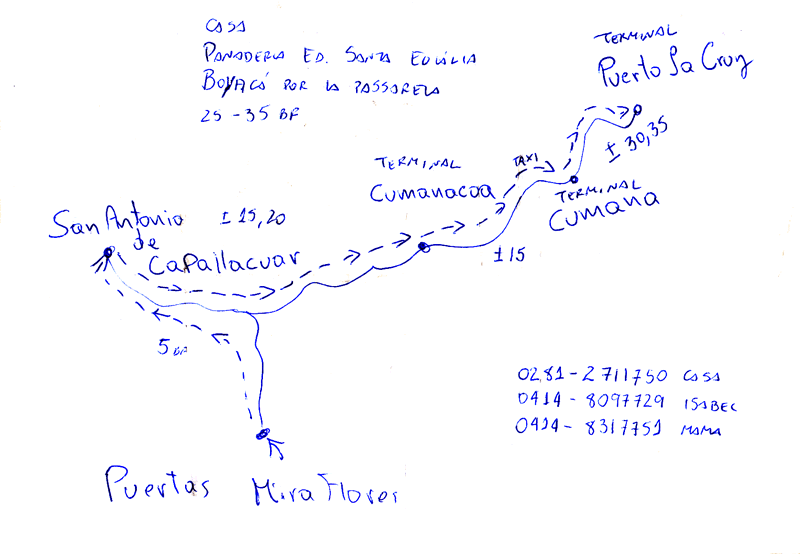 CASA
PANADERIA ED. SANTA EULALIA
BOYACÁ POR LA PASSARELA
25 - 35 BF
TERMINAL
Puerto La Cruz
± 30,35
TAXI
TERMINAL
Cumanacoa
TERMINAL
Cumana
San Antonio
de
Capallacuar
± 15,20
± 15
5 BF
0281-2711750 CASA
0414-8097729 ISABEL
0414-8317751 MAMA
Puertas Miraflores